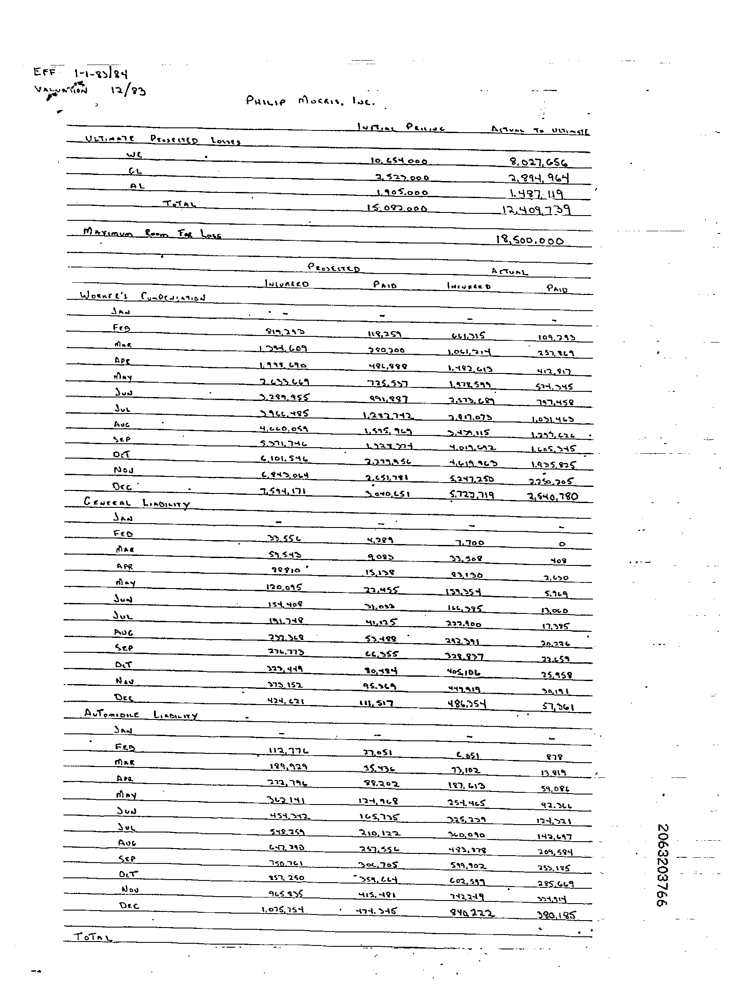 EFF 1-1-83/84
VALUATION 12/83
PHILIP MORRIS, INC.
INITIAL PRICING ACTUAL TO ULTIMATE
ULTIMATE PROJECTED LOSSES
WC 10,654,000 8,027,656
GL 2,523,000 2,894,964
AL 1,905,000 1,487,119
TOTAL 15,082,000 12,409,739
MAXIMUM ROOM FOR LOSS 18,500,000
PROJECTED ACTUAL
INCURRED PAID INCURRED PAID
WORKER'S COMPENSATION
JAN - - - -
FEB 819,293 118,259 661,315 109,293
MAR 1,394,609 280,200 1,061,214 257,869
APR 1,998,690 486,888 1,482,613 412,817
MAY 2,633,669 725,537 1,978,599 574,345
JUN 3,289,955 991,887 2,573,689 797,458
JUL 3,966,485 1,282,742 3,817,073 1,031,463
AUG 4,660,059 1,595,969 3,439,115 1,299,626
SEP 5,371,746 1,927,774 4,019,692 1,605,345
OCT 6,101,546 2,279,956 4,619,963 1,935,825
NOV 6,843,064 2,651,781 5,247,250 2,250,205
DEC 7,594,171 3,040,651 5,723,719 2,540,780
GENERAL LIABILITY
JAN - - - -
FEB 33,556 4,289 7,700 0
MAR 59,543 9,083 33,508 408
APR 88810 15,138 83,130 2,630
MAY 120,095 22,455 139,354 5,969
JUN 154,408 31,033 166,385 13,060
JUL 191,748 41,125 227,900 17,385
AUG 232,368 53,488 292,391 20,226
SEP 276,773 66,355 328,837 23,659
OCT 323,449 80,484 405,106 25,958
NOV 373,152 95,369 449,919 30,191
DEC 424,621 111,517 486,354 57,361
AUTOMOBILE LIABILITY
JAN - - - -
FEB 112,776 27,051 6,051 878
MAR 189,929 55,436 73,102 13,819
APR 272,796 88,202 187,613 59,086
MAY 362,141 124,968 254,465 92,366
JUN 454,342 165,735 325,239 124,321
JUL 548,259 210,122 360,090 142,697
AUG 647,390 257,556 483,378 209,584
SEP 750,761 306,705 599,902 253,185
OCT 857,250 359,664 602,599 285,669
NOV 965,835 415,481 742,249 334,914
DEC 1,075,754 474,345 840,222 380,185
TOTAL
2063203766